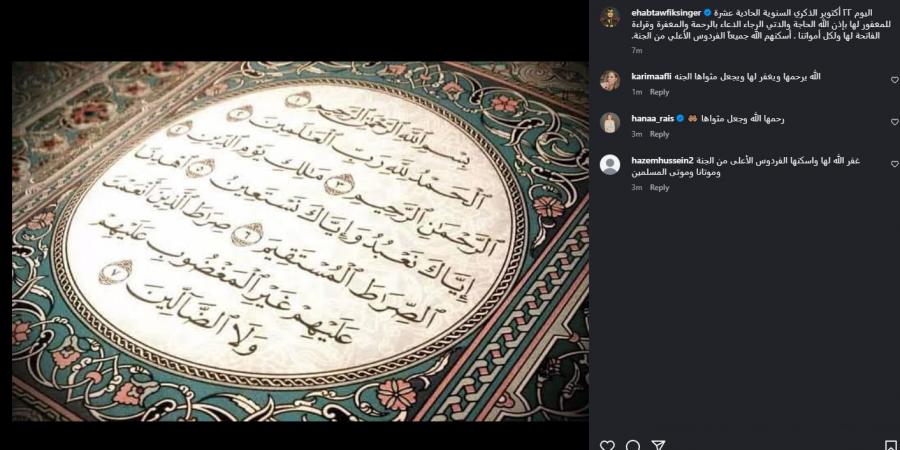 بِسْمِ اللَّهِ الرَّحْمَٰنِ الرَّحِيمِ ١
الْحَمْدُ لِلَّهِ رَبِّ الْعَالَمِينَ ٢
الرَّحْمَٰنِ الرَّحِيمِ ٣ مَالِكِ يَوْمِ الدِّينِ ٤
إِيَّاكَ نَعْبُدُ وَإِيَّاكَ نَسْتَعِينُ ٥ اهْدِنَا
الصِّرَاطَ الْمُسْتَقِيمَ ٦ صِرَاطَ الَّذِينَ أَنْعَمْتَ
عَلَيْهِمْ غَيْرِ الْمَغْضُوبِ عَلَيْهِمْ
وَلَا الضَّالِّينَ ٧
ehabtawfiksinger اليوم ٢٢ أكتوبر الذكري السنوية الحادية عشرة
للمغفور لها بإذن الله الحاجة والدتي الرجاء الدعاء بالرحمة والمغفرة وقراءة
الفاتحة لها ولكل أمواتنا . أسكنهم الله جميعاً الفردوس الأعلي من الجنة.
7m
karimaafli الله يرحمها ويغفر لها ويجعل مثواها الجنه
1m Reply
hanaa_rais رحمها الله وجعل مثواها
3m Reply
hazemhussein2 غفر الله لها واسكنها الفردوس الأعلى من الجنة
وموتانا وموتى المسلمين
3m Reply